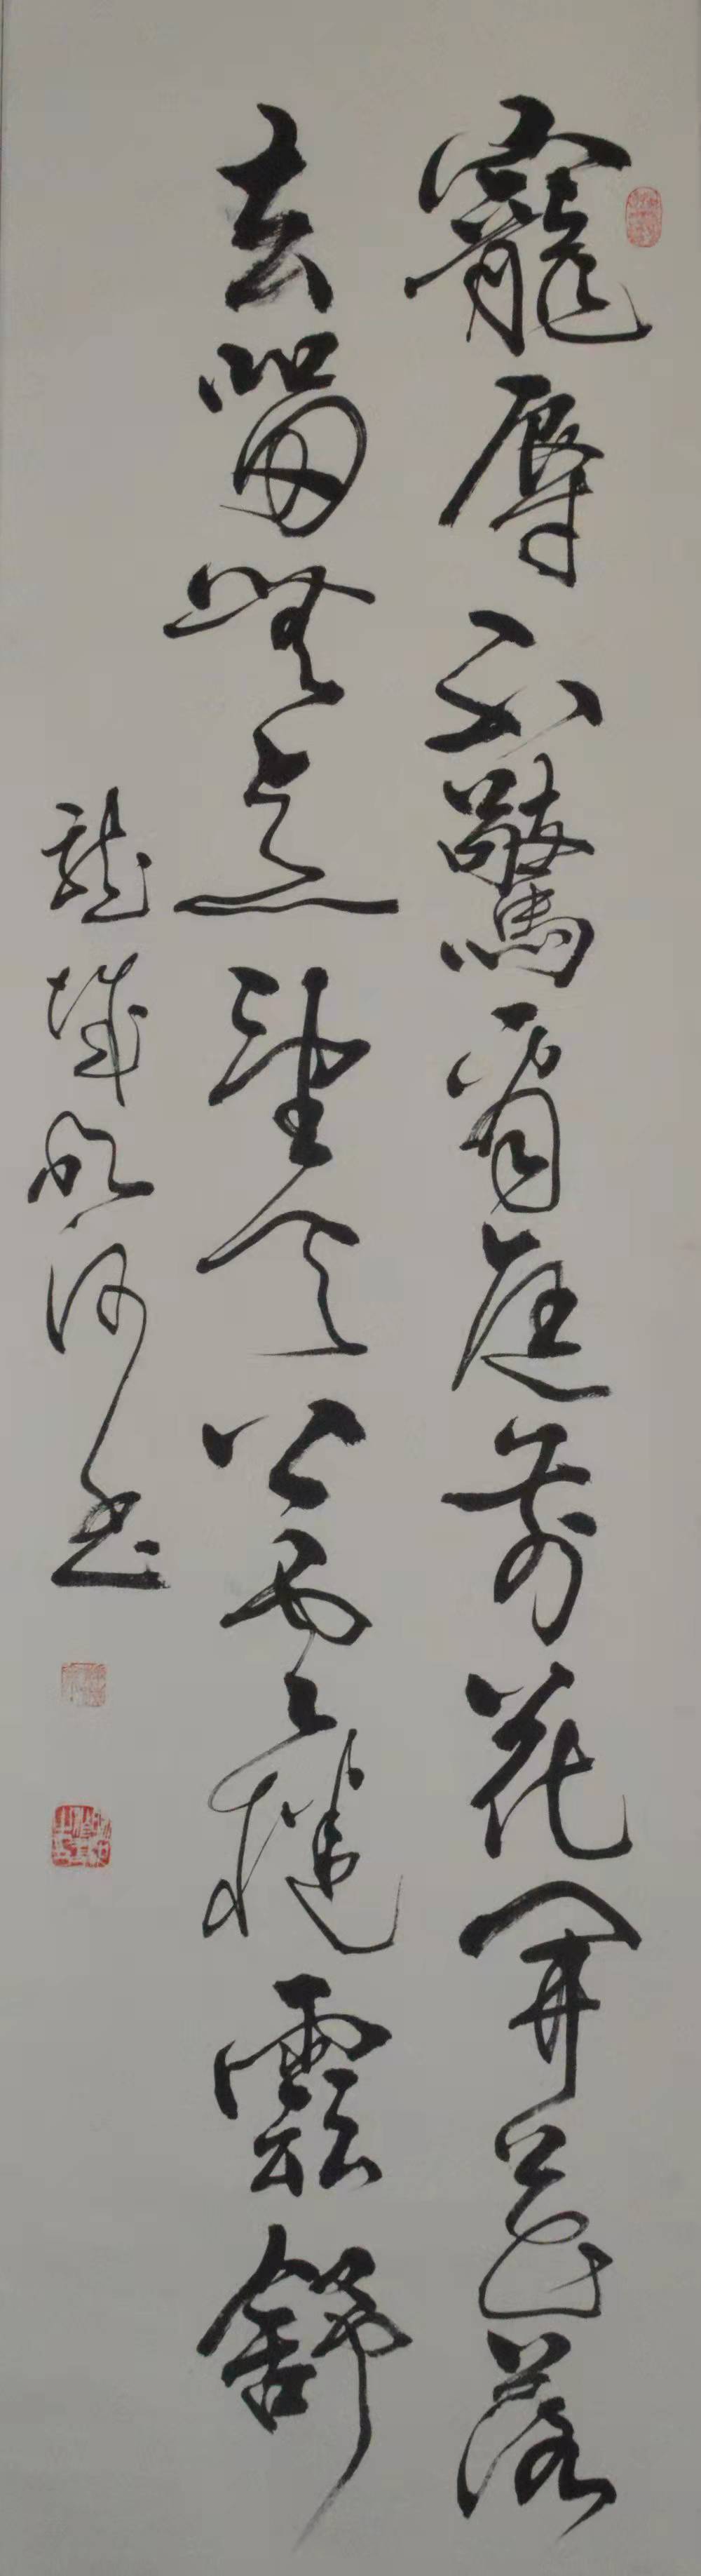 寵辱不驚看庭前花開花落
去留無意望天空雲捲雲舒
龍城書